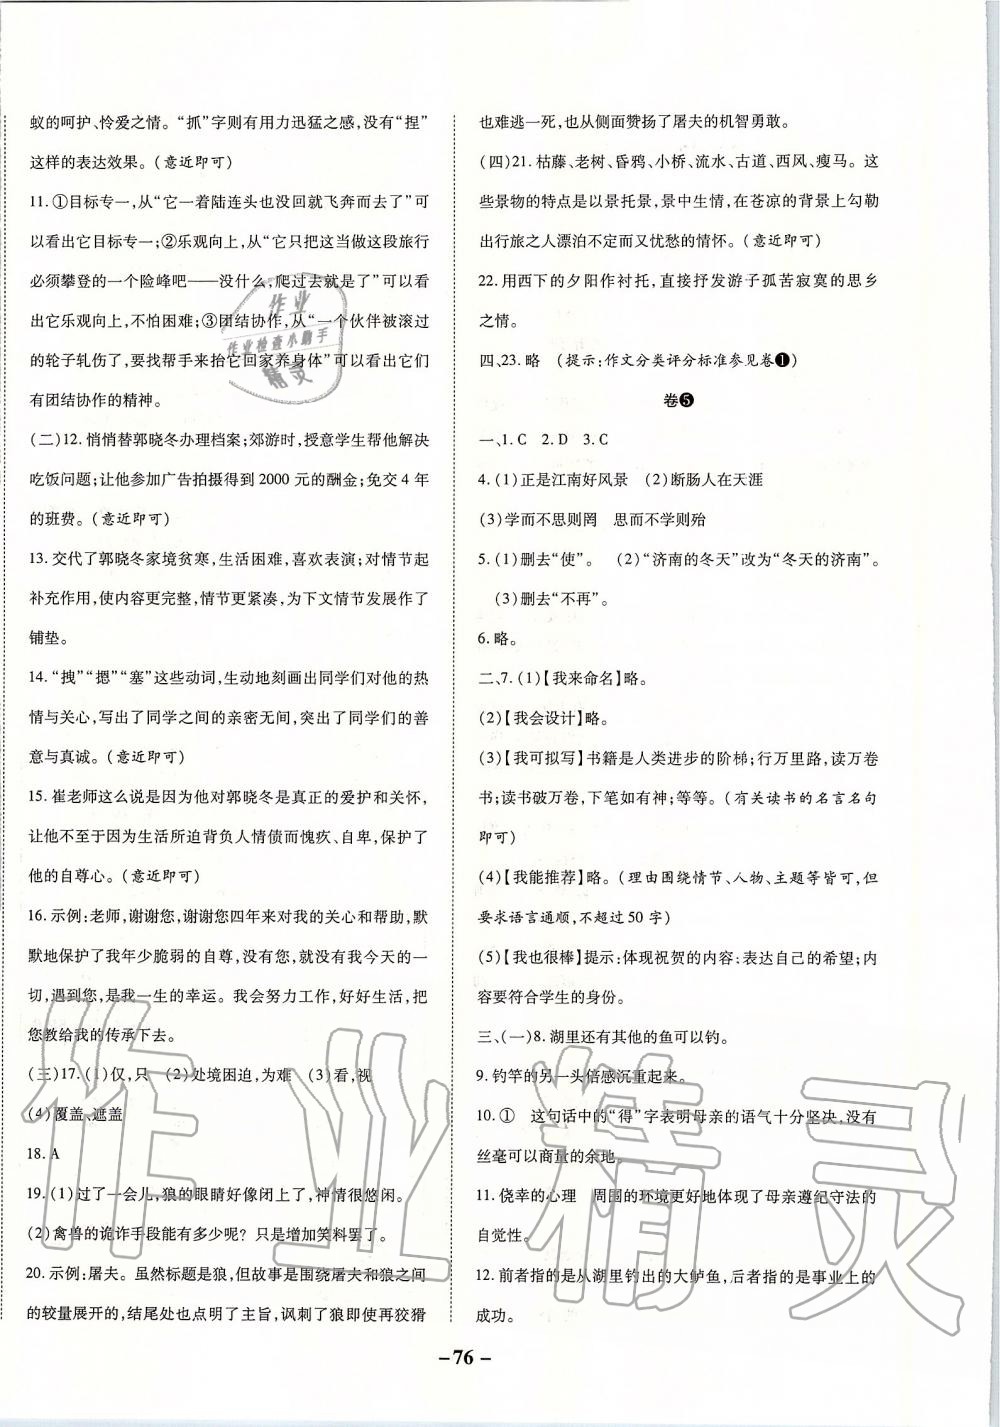 蚁的呵护、怜爱之情。“抓”字则有用力迅猛之感,没有“捏”
这样的表达效果。(意近即可)
11. ①目标专一,从“它一着陆连头也没回就飞奔而去了”可
以看出它目标专一;②乐观向上,从“它只把这当做这段旅行
必须攀登的一个险峰吧——没什么,爬过去就是了”可以看
出它乐观向上,不怕困难;③团结协作,从“一个伙伴被滚过
的轮子轧伤了,要找帮手来抬它回家养身体”可以看出它们
有团结协作的精神。
(二)12. 悄悄替郭晓冬办理档案;郊游时,授意学生帮他解决
吃饭问题;让他参加广告拍摄得到 2000 元的酬金;免交 4 年
的班费。(意近即可)
13. 交代了郭晓冬家境贫寒,生活困难,喜欢表演;对情节起
补充作用,使内容更完整,情节更紧凑,为下文情节发展作了
铺垫。
14. “拽”“摁”“塞”这些动词,生动地刻画出同学们对他的热
情与关心,写出了同学之间的亲密无间,突出了同学们的善
意与真诚。(意近即可)
15. 崔老师这么说是因为他对郭晓冬是真正的爱护和关怀,
让他不至于因为生活所迫背负人情债而愧疚、自卑,保护了
他的自尊心。(意近即可)
16. 示例:老师,谢谢您,谢谢您四年来对我的关心和帮助,默
默地保护了我年少脆弱的自尊,没有您,就没有我今天的一
切,遇到您,是我一生的幸运。我会努力工作,好好生活,把
您教给我的传承下去。
(三)17. (1)仅,只　(2)处境困迫,为难　(3)看,视
(4)覆盖、遮盖
18. A
19. (1)过了一会儿,狼的眼睛好像闭上了,神情很悠闲。
(2)禽兽的诡诈手段能有多少呢? 只是增加笑料罢了。
20. 示例:屠夫。虽然标题是狼,但故事是围绕屠夫和狼之间
的较量展开的,结尾处也点明了主旨,讽刺了狼即使再狡猾
也难逃一死,也从侧面赞扬了屠夫的机智勇敢。
(四)21. 枯藤、老树、昏鸦、小桥、流水、古道、西风、瘦马。这
些景物的特点是以景托景,景中生情,在苍凉的背景上勾勒
出行旅之人漂泊不定而又忧愁的情怀。(意近即可)
22. 用西下的夕阳作衬托,直接抒发游子孤苦寂寞的思乡
之情。
四、23. 略　(提示:作文分类评分标准参见卷❶)
卷❺
一、1. C　2. D　3. C
4. (1)正是江南好风景　(2)断肠人在天涯
(3)学而不思则罔　思而不学则殆
5. (1)删去“使”。　(2)“济南的冬天”改为“冬天的济南”。
(3)删去“不再”。
6. 略。
二、7. (1)【我来命名】略。
(2)【我会设计】略。
(3)【我可拟写】书籍是人类进步的阶梯;行万里路,读万卷
书;读书破万卷,下笔如有神;等等。(有关读书的名言名句
即可)
(4)【我能推荐】略。(理由围绕情节、人物、主题等皆可,但
要求语言通顺,不超过 50 字)
(5)【我也很棒】提示:体现祝贺的内容;表达自己的希望;内
容要符合学生的身份。
三、(一)8. 湖里还有其他的鱼可以钓。
9. 钓竿的另一头倍感沉重起来。
10. ①　这句话中的“得”字表明母亲的语气十分坚决,没有
丝毫可以商量的余地。
11. 侥幸的心理　周围的环境更好地体现了母亲遵纪守法的
自觉性。
12. 前者指的是从湖里钓出的大鲈鱼,后者指的是事业上的
成功。
－76－
作业
作业检查小助手
精灵
作业精灵